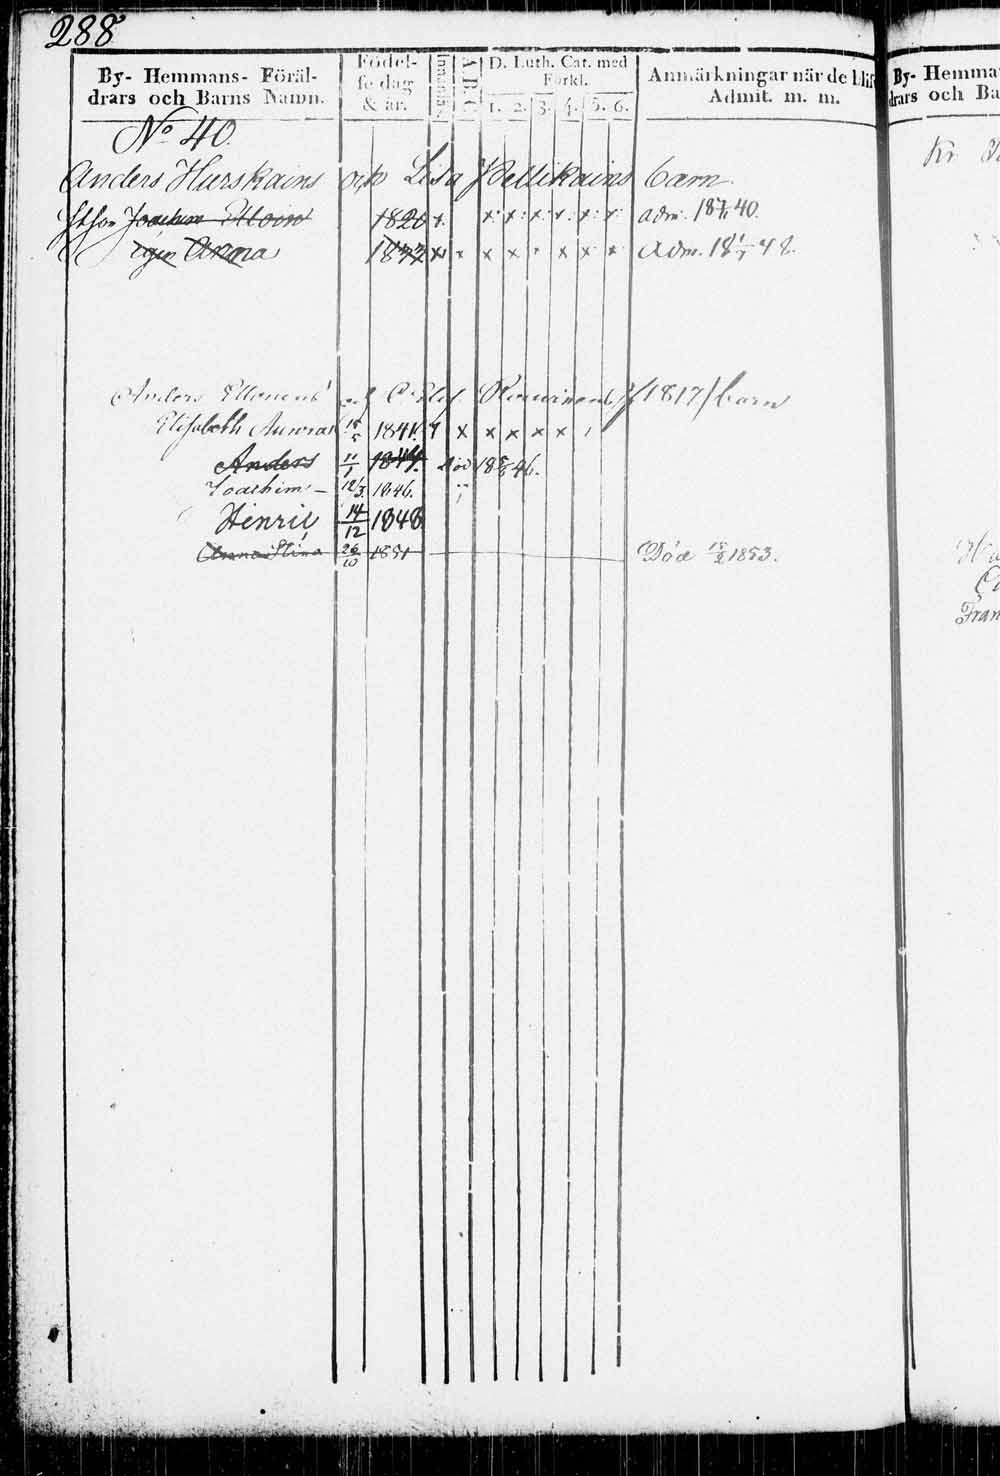 288
By- Hemmans- Föräl-
drars och Barns Namn.
Födel-
se dag
& år.
A B C
D. Luth. Cat. med
Förkl.
1. 2. 3. 4. 5. 6.
Anmärkningar när de blif
Admit. m. m.
No 40.
Anders Hurskains och Lisa Pellikains barn
Joachim 1820 x x x x x x adm. 40.
Anna x x x x x x x Adm. 18 48.
Anders och barn
Elisabeth 15/5 1841. x x x x x
Anders 11/1 1844. död 18 46.
Joachim – 12/3. 1846.
Henric 14/12 1848
Anna Stina 26/10 1851 Död 15/2 1853.
By- Hemma
drars och Ba
Kr
Fran